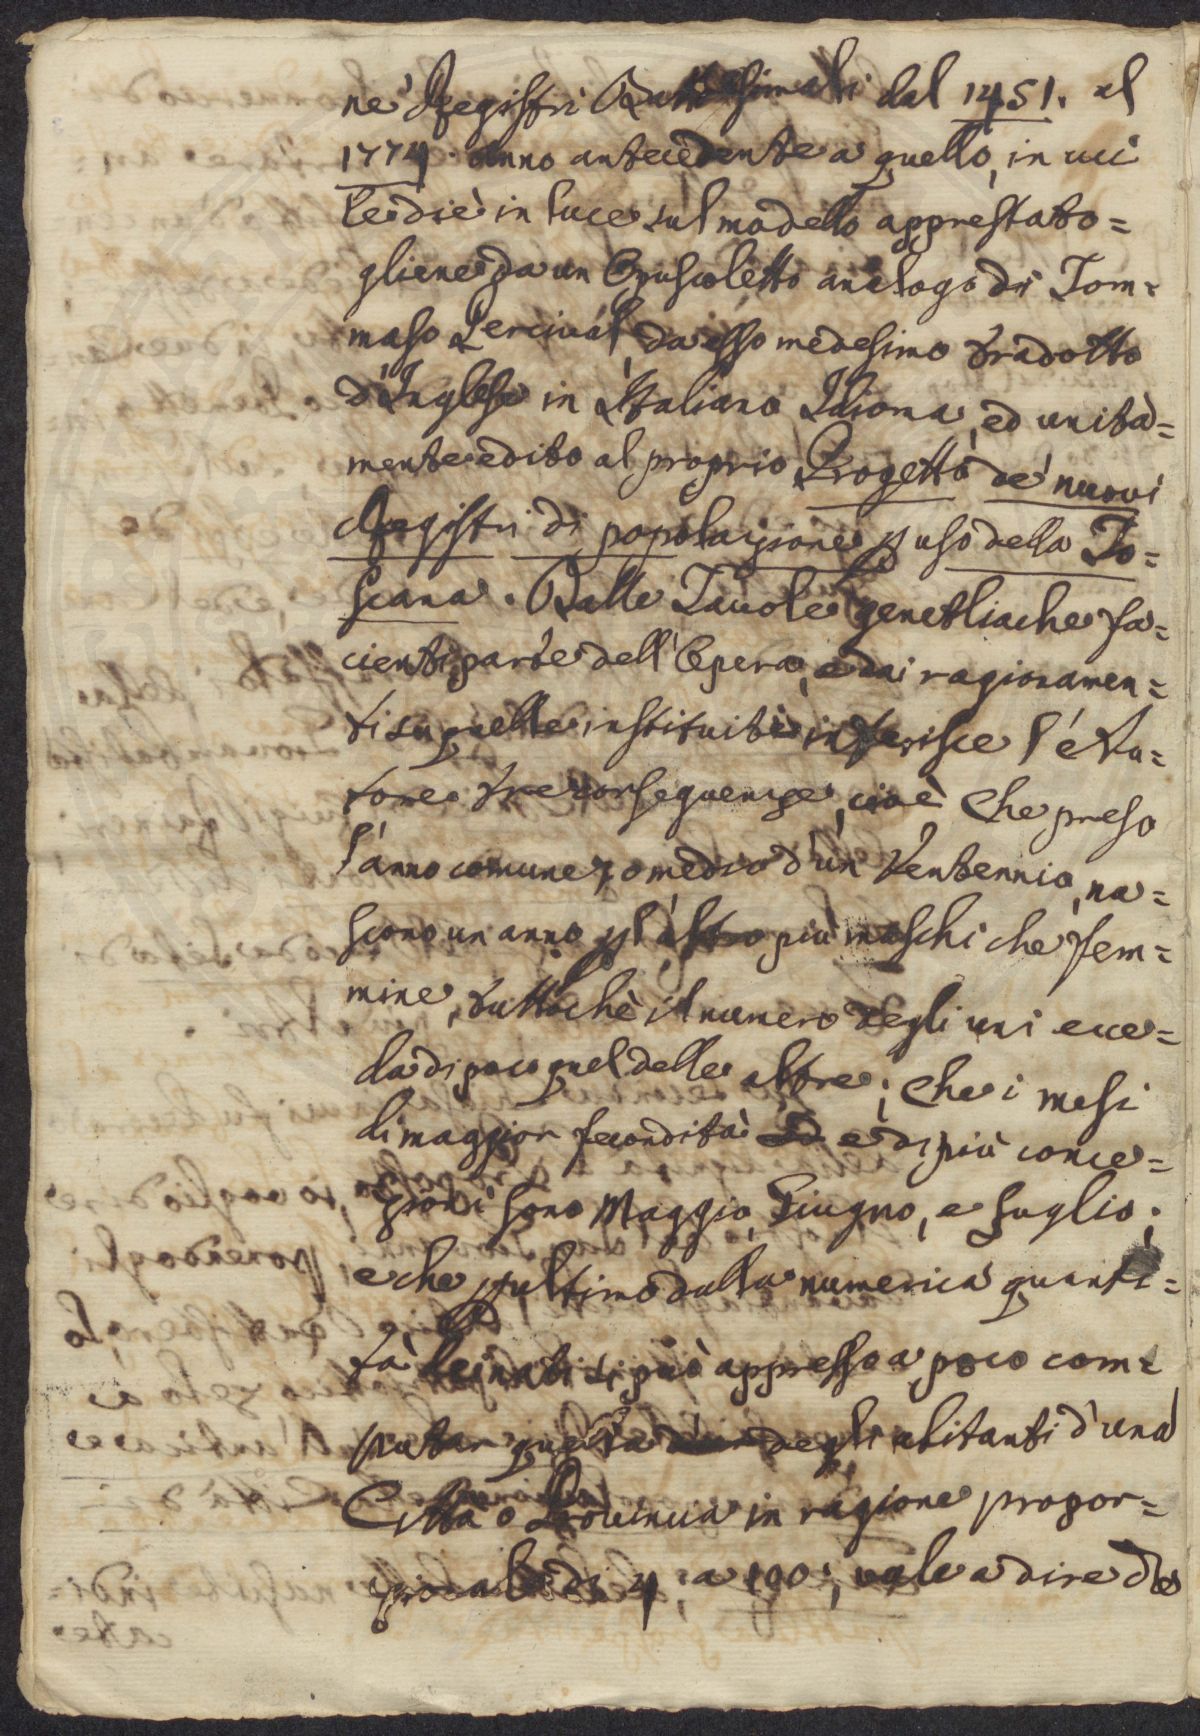 ne' Registri Battesimali dal 1451. al
1774. anno antecedente a quello, in cui
le diè in luce sul modello apprestato=
gliene da un Opuscoletto analogo di Tom=
maso Percival, da esso medesimo tradotto
d'Inglese in Italiano Idioma, ed unita=
mente edito al proprio Progetto de' nuovi
Registri di popolazione p uso della To=
scana. Dalle Tavole genetliache fa=
cienti parte dell'Opera, e dai ragionamen=
ti su quelle instituiti inferisce l'Au=
tore tre conseguenze, cioè che preso
l'anno comune, o medio d'un Ventennio, na=
scono un anno p l'altro più maschi che fem=
mine, tuttochè il numero degli uni ecce=
da di poco quel delle altre; che i mesi
di maggior fecondità e di più conce=
zioni sono Maggio, Giugno, e Luglio;
e che p ultimo dalla numerica quanti=
tà dei nati si può appresso a poco com=
putar quella degli abitanti d'una
Città o Provincia in ragione propor=
zionale di 4; a 100; vale a dire de